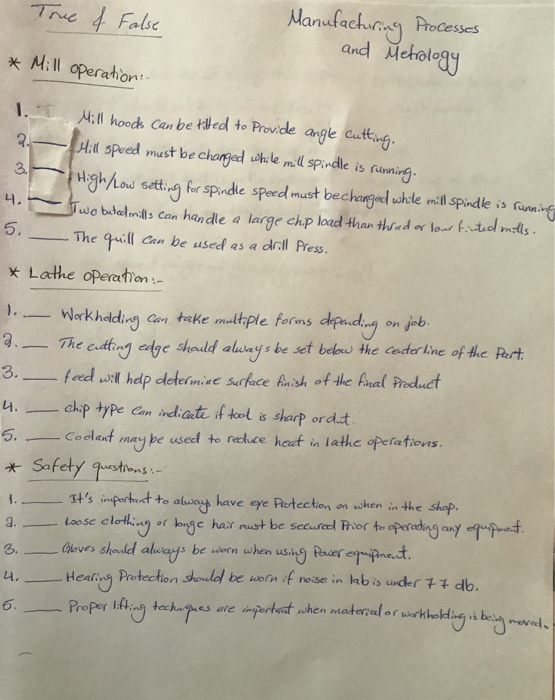 True & False
Manufacturing Processes
and Metrology
* Mill operation:-
1. Mill hoods can be tilted to Provide angle cutting.
2. Mill speed must be changed while mill spindle is running.
3. High/Low setting for spindle speed must be changed while mill spindle is running
4. Two fluted mills can handle a large chip load than three or four fluted mills.
5. The quill can be used as a drill Press.
* Lathe operation:-
1. Workholding can take multiple forms depending on job.
2. The cutting edge should always be set below the centerline of the Part.
3. feed will help determine surface finish of the final Product
4. chip type can indicate if tool is sharp or dut
5. Coolant may be used to reduce heat in lathe operations.
* Safety questions:-
1. It's important to always have eye Protection on when in the shop.
2. Loose clothing or longe hair must be secured Prior to operating any equipment.
3. Gloves should always be worn when using Power equipment.
4. Hearing Protection should be worn if noise in lab is under 77 db.
5. Proper lifting techniques are important when material or workholding is being moved.